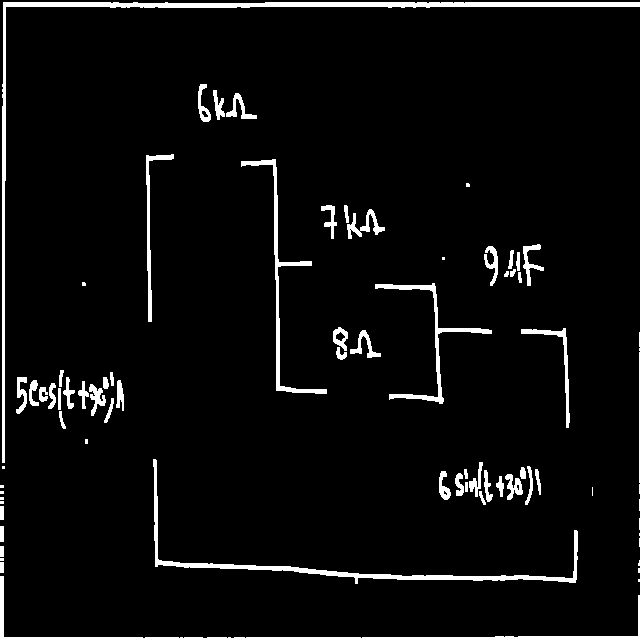 6kΩ
7kΩ
9µF
8Ω
5cos(t+30°)A
6 sin(t+30°)